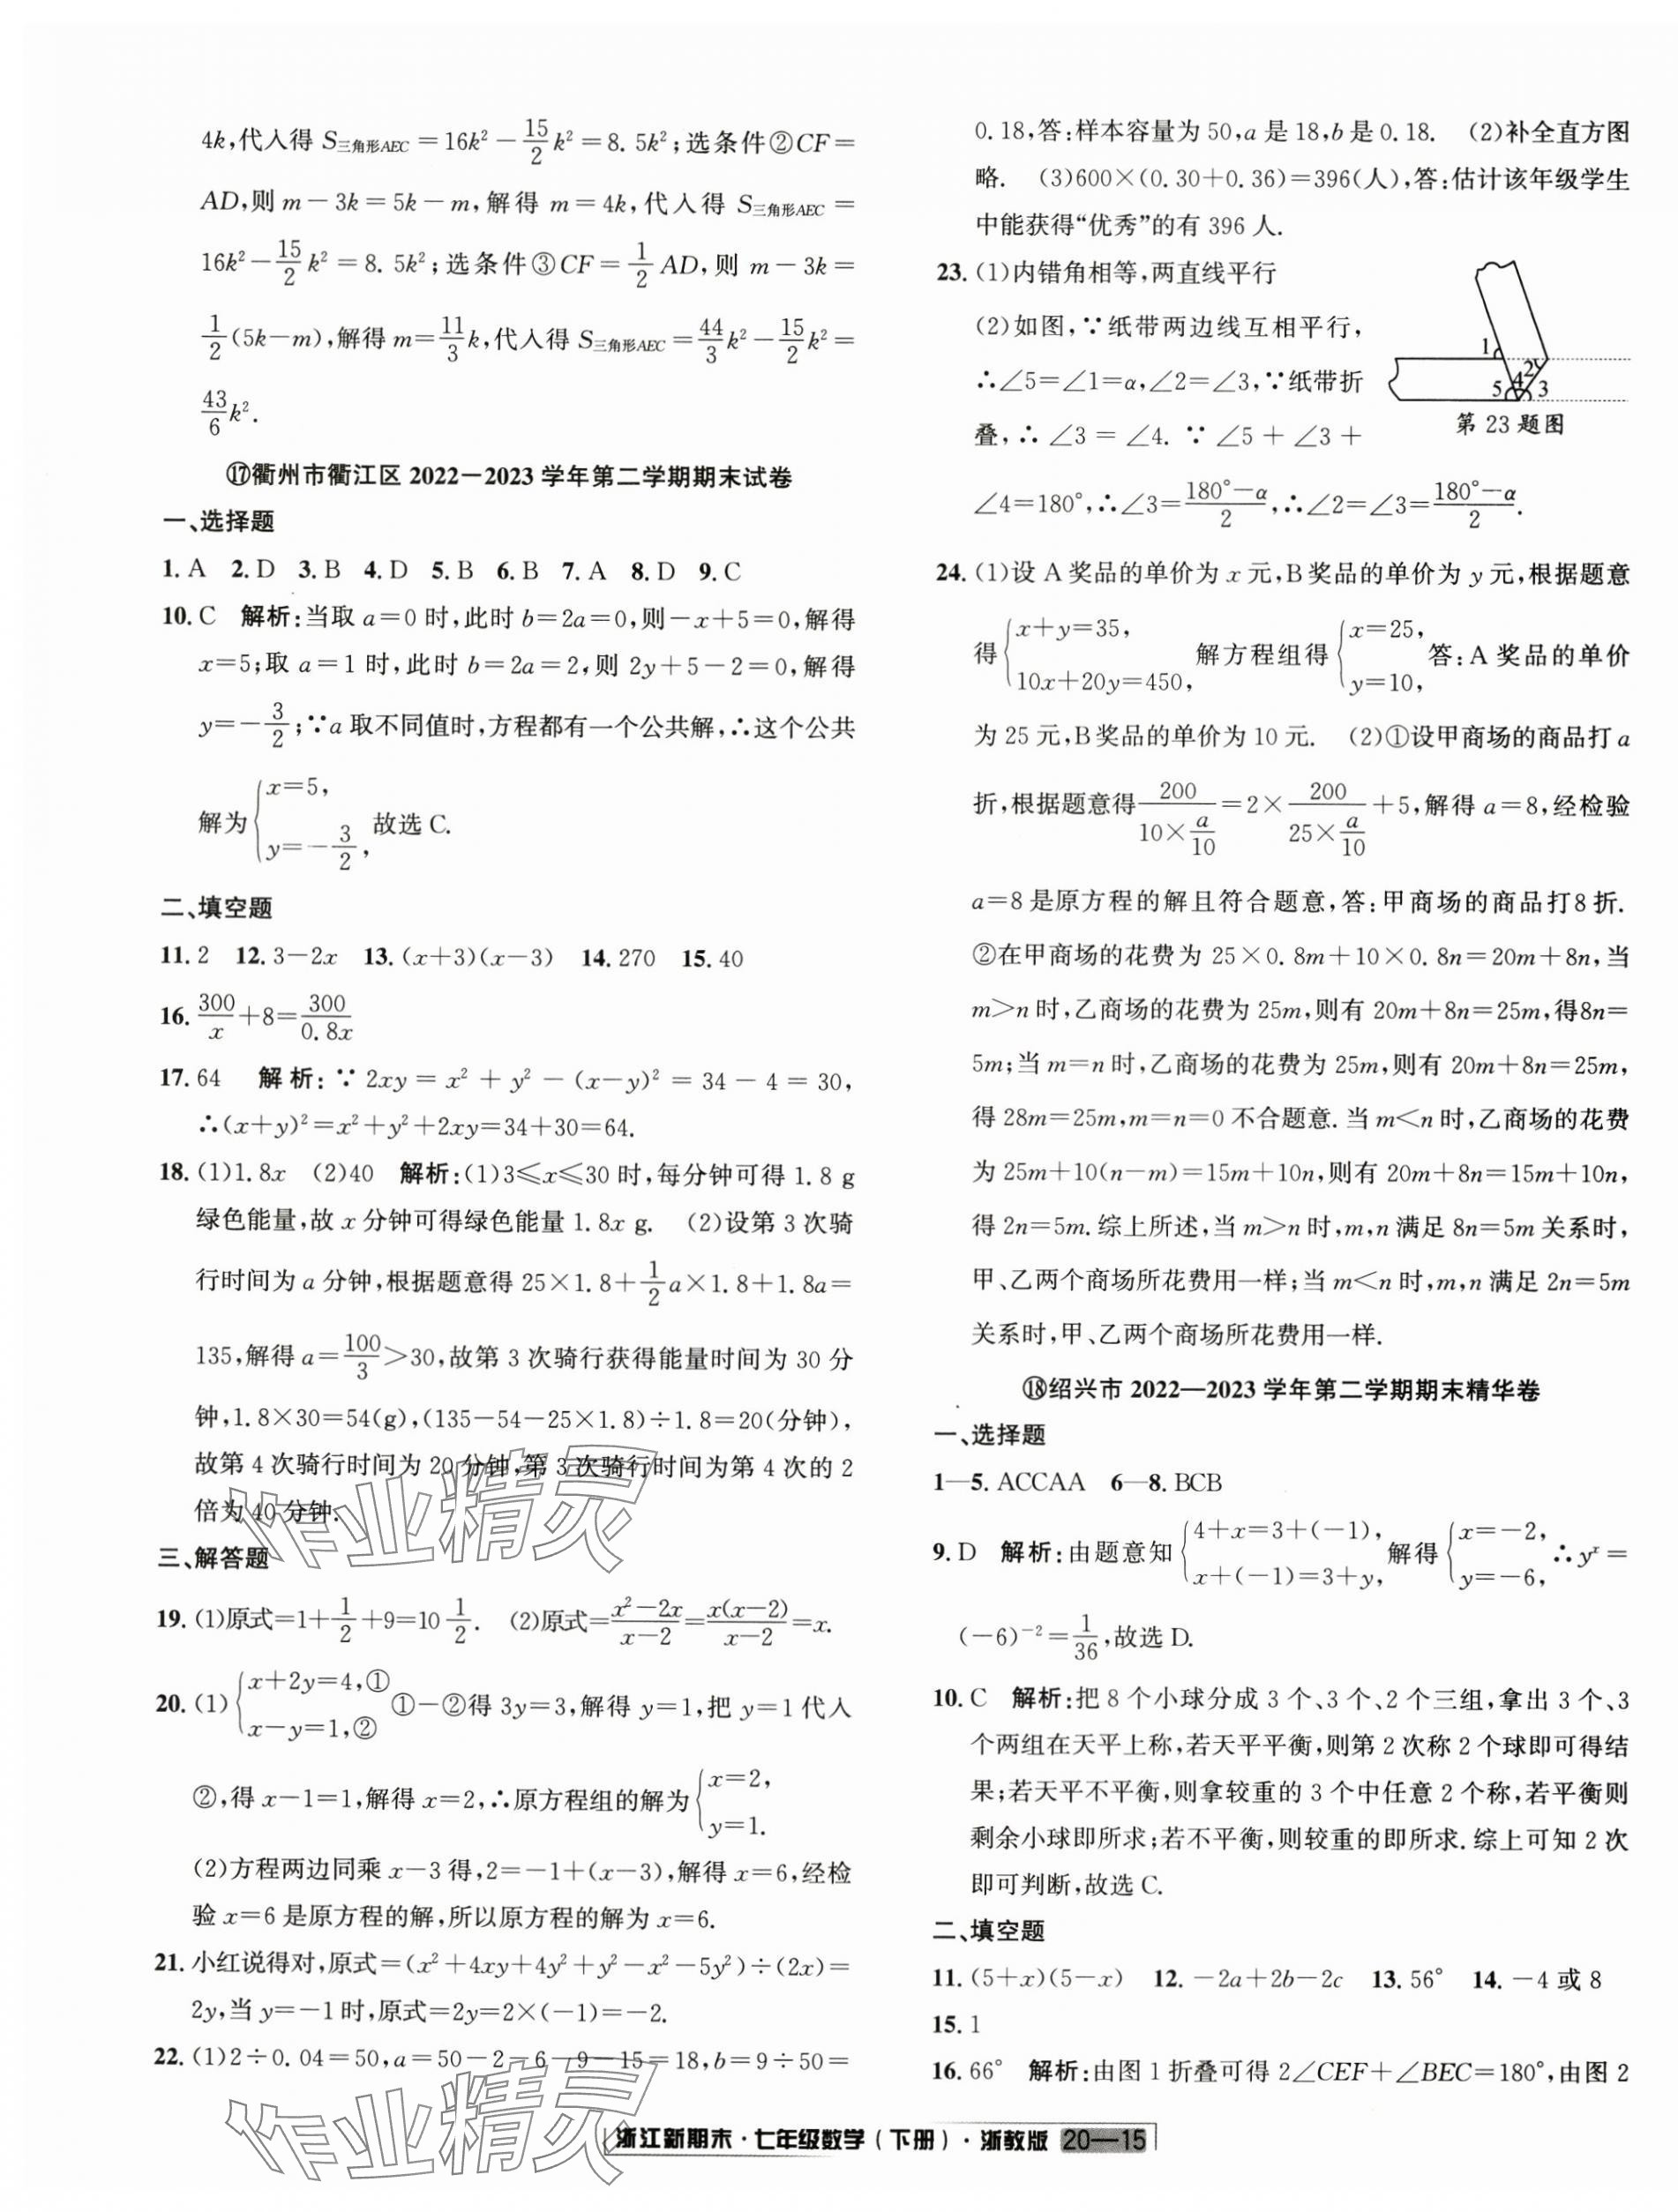 4k,代入得 S三角形AEC＝16k²－15/2 k²＝8.5k²;选条件②CF＝
AD,则 m－3k＝5k－m,解得 m＝4k,代入得 S三角形AEC＝
16k²－15/2 k²＝8.5k²;选条件③CF＝1/2 AD,则 m－3k＝
1/2(5k－m),解得 m＝11/3 k,代入得 S三角形AEC＝44/3 k²－15/2 k²＝
43/6 k².
⑰衢州市衢江区 2022－2023 学年第二学期期末试卷
一、选择题
1. A 2. D 3. B 4. D 5. B 6. B 7. A 8. D 9. C
10. C 解析:当取 a＝0 时,此时 b＝2a＝0,则－x＋5＝0,解得
x＝5;取 a＝1 时,此时 b＝2a＝2,则 2y＋5－2＝0,解得
y＝－3/2;∵a 取不同值时,方程都有一个公共解,∴这个公共
解为{x＝5, y＝－3/2, 故选 C.
二、填空题
11. 2 12. 3－2x 13. (x＋3)(x－3) 14. 270 15. 40
16. 300/x＋8＝300/0.8x
17. 64 解析:∵2xy＝x²＋y²－(x－y)²＝34－4＝30,
∴(x＋y)²＝x²＋y²＋2xy＝34＋30＝64.
18. (1)1.8x (2)40 解析:(1)3≤x≤30 时,每分钟可得 1.8 g
绿色能量,故 x 分钟可得绿色能量 1.8x g. (2)设第 3 次骑
行时间为 a 分钟,根据题意得 25×1.8＋1/2 a×1.8＋1.8a＝
135,解得 a＝100/3＞30,故第 3 次骑行获得能量时间为 30 分
钟,1.8×30＝54(g),(135－54－25×1.8)÷1.8＝20(分钟),
故第 4 次骑行时间为 20 分钟,第 3 次骑行时间为第 4 次的 2
倍为 40 分钟.
三、解答题
19. (1)原式＝1＋1/2＋9＝10 1/2. (2)原式＝(x²－2x)/(x－2)＝x(x－2)/(x－2)＝x.
20. (1){x＋2y＝4,① x－y＝1,② ①－②得 3y＝3,解得 y＝1,把 y＝1 代入
②,得 x－1＝1,解得 x＝2,∴原方程组的解为{x＝2, y＝1.
(2)方程两边同乘 x－3 得,2＝－1＋(x－3),解得 x＝6,经检
验 x＝6 是原方程的解,所以原方程的解为 x＝6.
21. 小红说得对,原式＝(x²＋4xy＋4y²＋y²－x²－5y²)÷(2x)＝
2y,当 y＝－1 时,原式＝2y＝2×(－1)＝－2.
22. (1)2÷0.04＝50,a＝50－2－6－9－15＝18,b＝9÷50＝
0.18,答:样本容量为 50,a 是 18,b 是 0.18. (2)补全直方图
略. (3)600×(0.30＋0.36)＝396(人),答:估计该年级学生
中能获得“优秀”的有 396 人.
23. (1)内错角相等,两直线平行
(2)如图,∵纸带两边线互相平行,
∴∠5＝∠1＝α,∠2＝∠3,∵纸带折
叠,∴∠3＝∠4.∵∠5＋∠3＋
∠4＝180°,∴∠3＝(180°－α)/2,∴∠2＝∠3＝(180°－α)/2.
1 2 4 5 3
第 23 题图
24. (1)设 A 奖品的单价为 x 元,B 奖品的单价为 y 元,根据题意
得{x＋y＝35, 10x＋20y＝450, 解方程组得{x＝25, y＝10, 答:A 奖品的单价
为 25 元,B 奖品的单价为 10 元. (2)①设甲商场的商品打 a
折,根据题意得 200/(10×a/10)＝2×200/(25×a/10)＋5,解得 a＝8,经检验
a＝8 是原方程的解且符合题意,答:甲商场的商品打8 折.
②在甲商场的花费为 25×0.8m＋10×0.8n＝20m＋8n,当
m＞n 时,乙商场的花费为 25m,则有 20m＋8n＝25m,得8n＝
5m;当 m＝n 时,乙商场的花费为 25m,则有 20m＋8n＝25m,
得 28m＝25m,m＝n＝0 不合题意.当 m＜n 时,乙商场的花费
为 25m＋10(n－m)＝15m＋10n,则有 20m＋8n＝15m＋10n,
得 2n＝5m.综上所述,当 m＞n 时,m,n 满足 8n＝5m 关系时,
甲、乙两个商场所花费用一样;当 m＜n 时,m,n 满足 2n＝5m
关系时,甲、乙两个商场所花费用一样.
⑱绍兴市 2022—2023 学年第二学期期末精华卷
一、选择题
1—5. ACCAA 6—8. BCB
9. D 解析:由题意知{4＋x＝3＋(－1), x＋(－1)＝3＋y, 解得{x＝－2, y＝－6, ∴yˣ＝
(－6)⁻²＝1/36,故选 D.
10. C 解析:把 8 个小球分成 3 个、3 个、2 个三组,拿出 3 个、3
个两组在天平上称,若天平平衡,则第 2 次称 2 个球即可得结
果;若天平不平衡,则拿较重的 3 个中任意 2 个称,若平衡则
剩余小球即所求;若不平衡,则较重的即所求.综上可知 2 次
即可判断,故选 C.
二、填空题
11. (5＋x)(5－x) 12. －2a＋2b－2c 13. 56° 14. －4 或 8
15. 1
16. 66° 解析:由图 1 折叠可得 2∠CEF＋∠BEC＝180°,由图 2
浙江新期末·七年级数学(下册)·浙教版 20—15
作业精灵
作业精灵